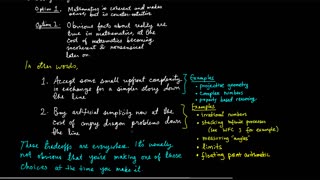 Option 1. Mathematics is coherent and makes
sense, but is counter-intuitive
Option 2. Obvious facts about reality are
true in mathematics, at the
cost of mathematics becoming
incoherent & nonsensical
later on
In other words,
1. Accept some small upfront complexity
in exchange for a simpler story down
the line
Examples
• projective geometry
• complex numbers
• property based reasoning
2. Buy artificial simplicity now at the
cost of angry dragon problems down
the line
Examples
• irrational numbers
• stacking infinite processes
(see WFC for example)
• measuring "angles"
• limits
• floating point arithmetic
These tradeoffs are everywhere. It's usually
not obvious that you're making one of these
choices at the time you make it.